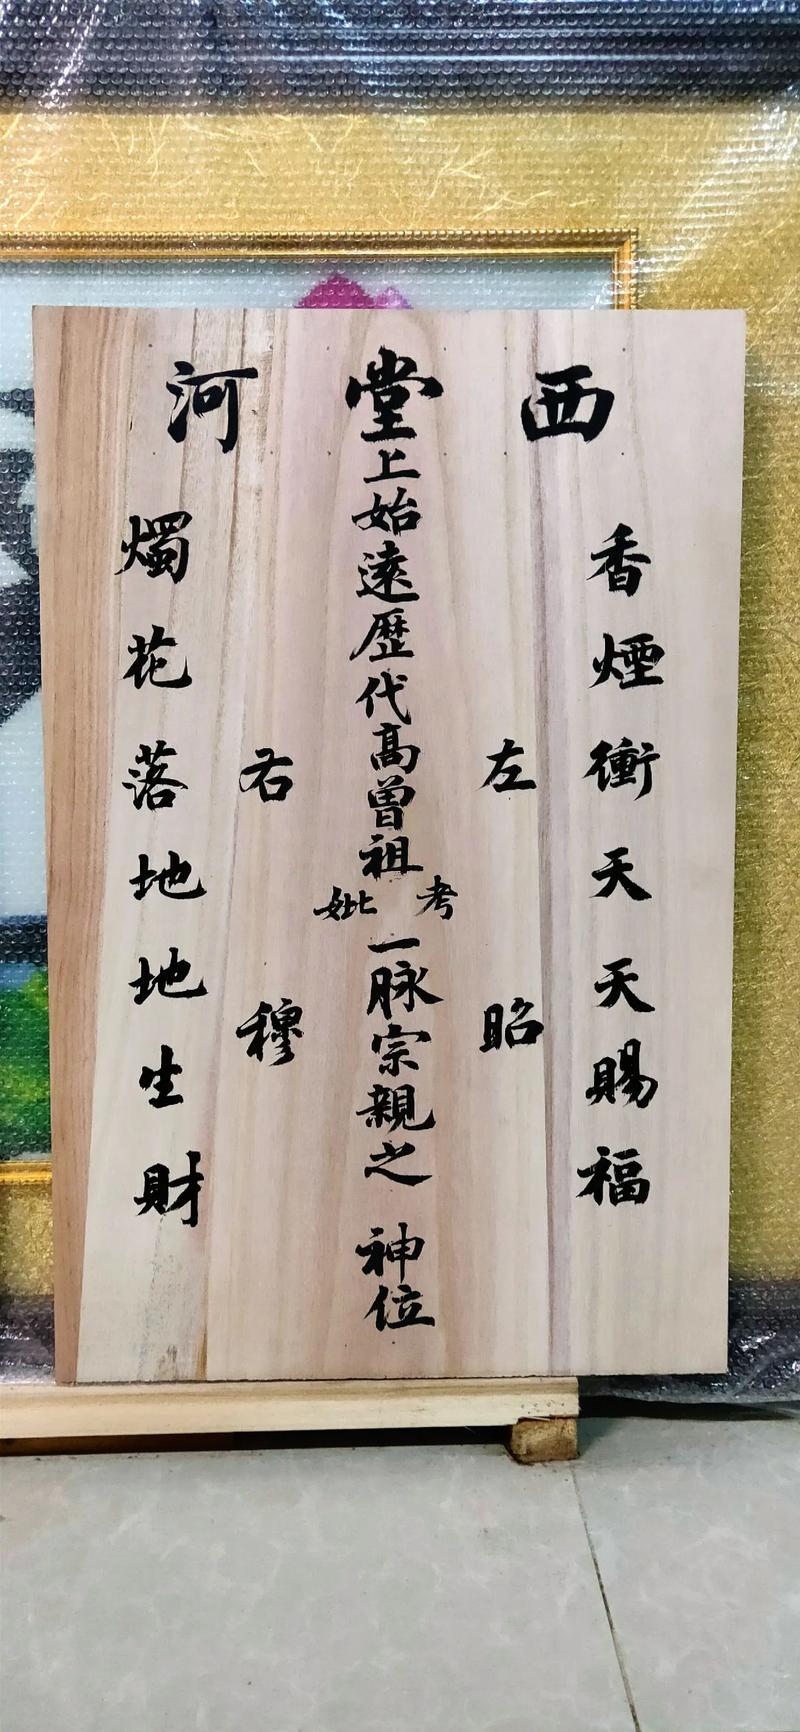 西河堂
香煙衝天天賜福
左昭
堂上始遠歷代高曾祖考妣一脉宗親之神位
右穆
燭花落地地生財